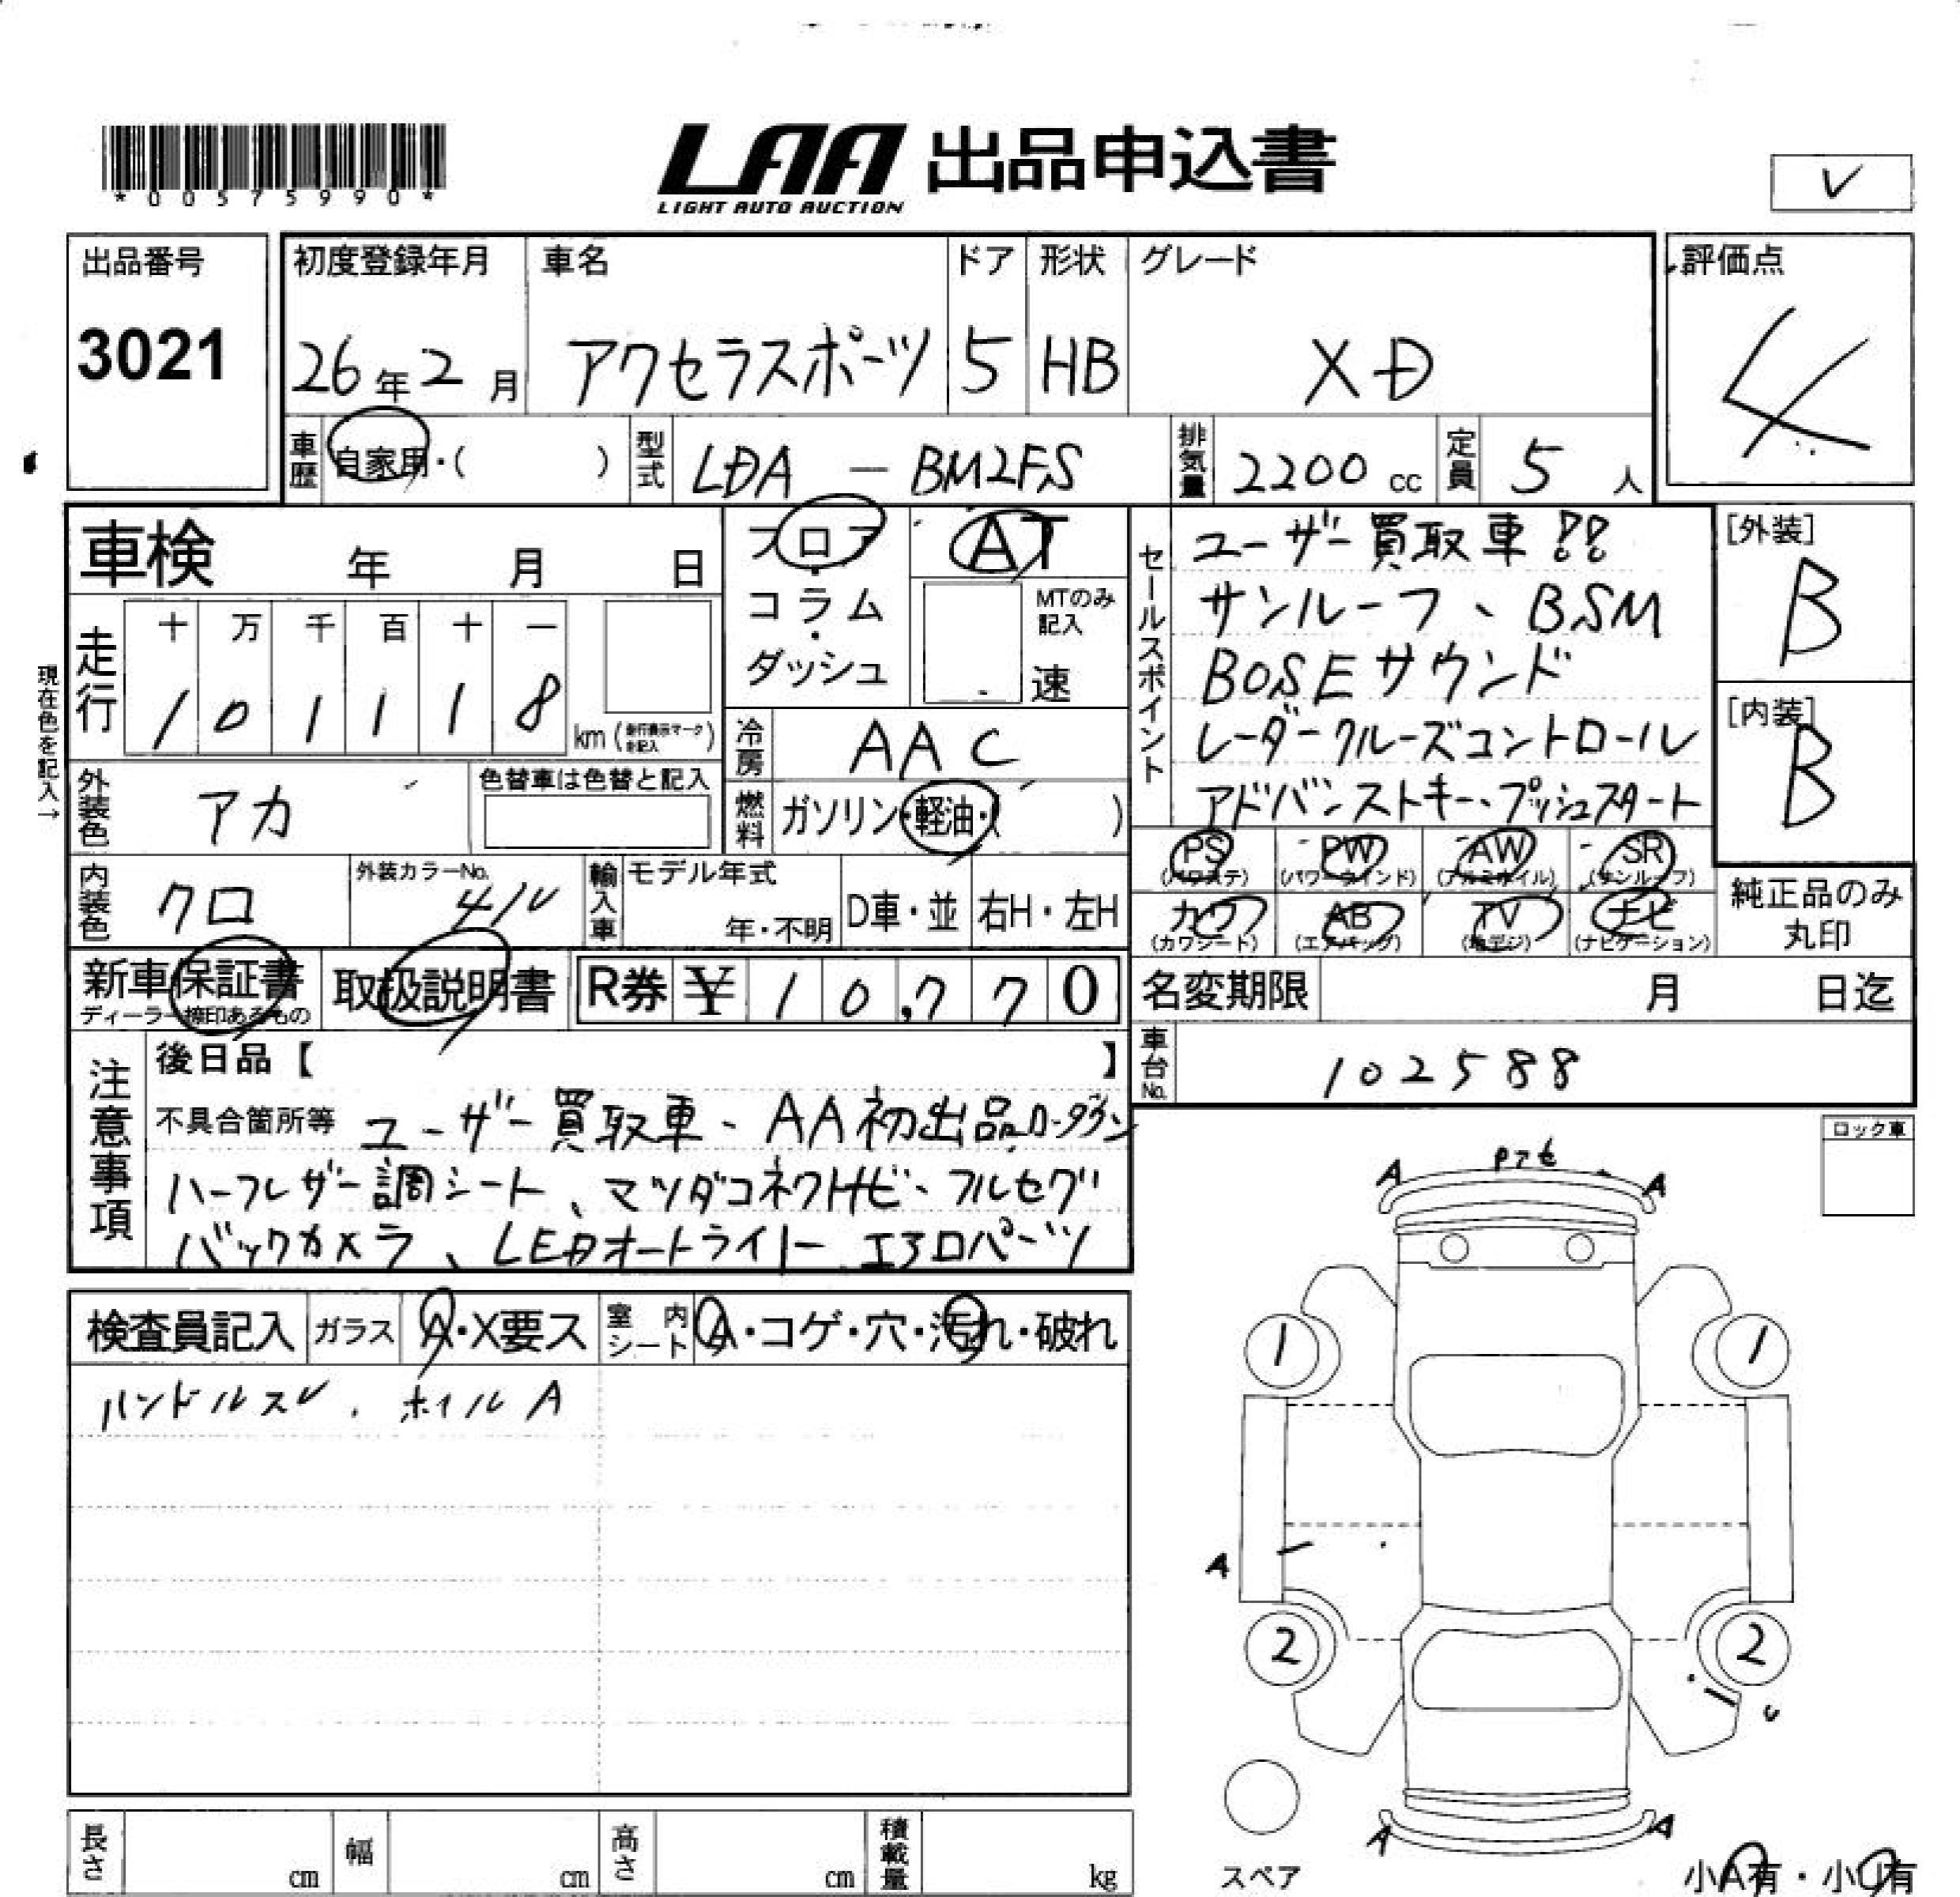 *00575990*
LAA 出品申込書
LIGHT AUTO AUCTION
出品番号
3021
初度登録年月
26年2月
車名
アクセラスポーツ
ドア
5
形状
HB
グレード
XD
評価点
4
車歴
自家用・( )
型式
LDA - BM2FS
排気量
2200 cc
定員
5 人
車検 年 月 日
フロア・コラム・ダッシュ
AT
MTのみ記入
速
セールスポイント
ユーザー買取車!!
サンルーフ、BSM
BOSEサウンド
レーダークルーズコントロール
アドバンストキー、プッシュスタート
[外装]
B
[内装]
B
現在色を記入→
走行
十 万 千 百 十 一
1 0 1 1 1 8
km (走行表示マークを記入)
冷房
AAC
外装色
アカ
色替車は色替と記入
燃料
ガソリン・軽油・( )
PS (パワステ)
PW (パワーウインド)
AW (アルミホイル)
SR (サンルーフ)
内装色
クロ
外装カラーNo.
41V
輸入車
モデル年式
年・不明
D車・並
右H・左H
カワ (カワシート)
AB (エアバッグ)
TV (地デジ)
ナビ (ナビゲーション)
純正品のみ丸印
新車保証書
ディーラー捺印あるもの
取扱説明書
R券 ¥ 10,770
名変期限 月 日迄
車台No.
102588
注意事項
後日品【 】
不具合箇所等 ユーザー買取車、AA初出品 ローダウン
ハーフレザー調シート、マツダコネクトナビ、フルセグ
バックカメラ、LEDオートライト、エアロパーツ
ロック車
検査員記入
ガラス
A・X要ス
室内シート
A・コゲ・穴・汚れ・破れ
ハンドルスレ、ホイルA
A A
1 1
A
2 2
U
A A
スペア
小A有・小U有
長さ cm
幅 cm
高さ cm
積載量 kg